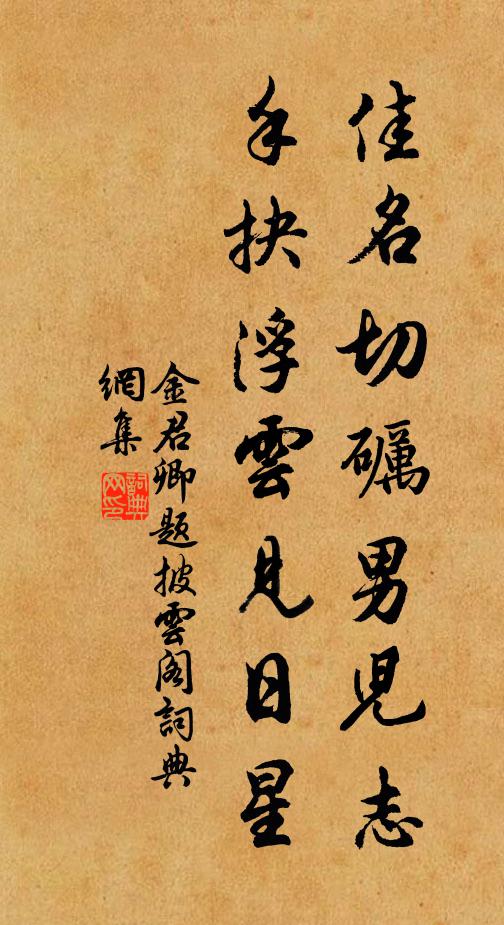 佳名切礪男兒志
手抉浮雲見日星
金君卿題披雲閣詞典
網集
詞典
网印